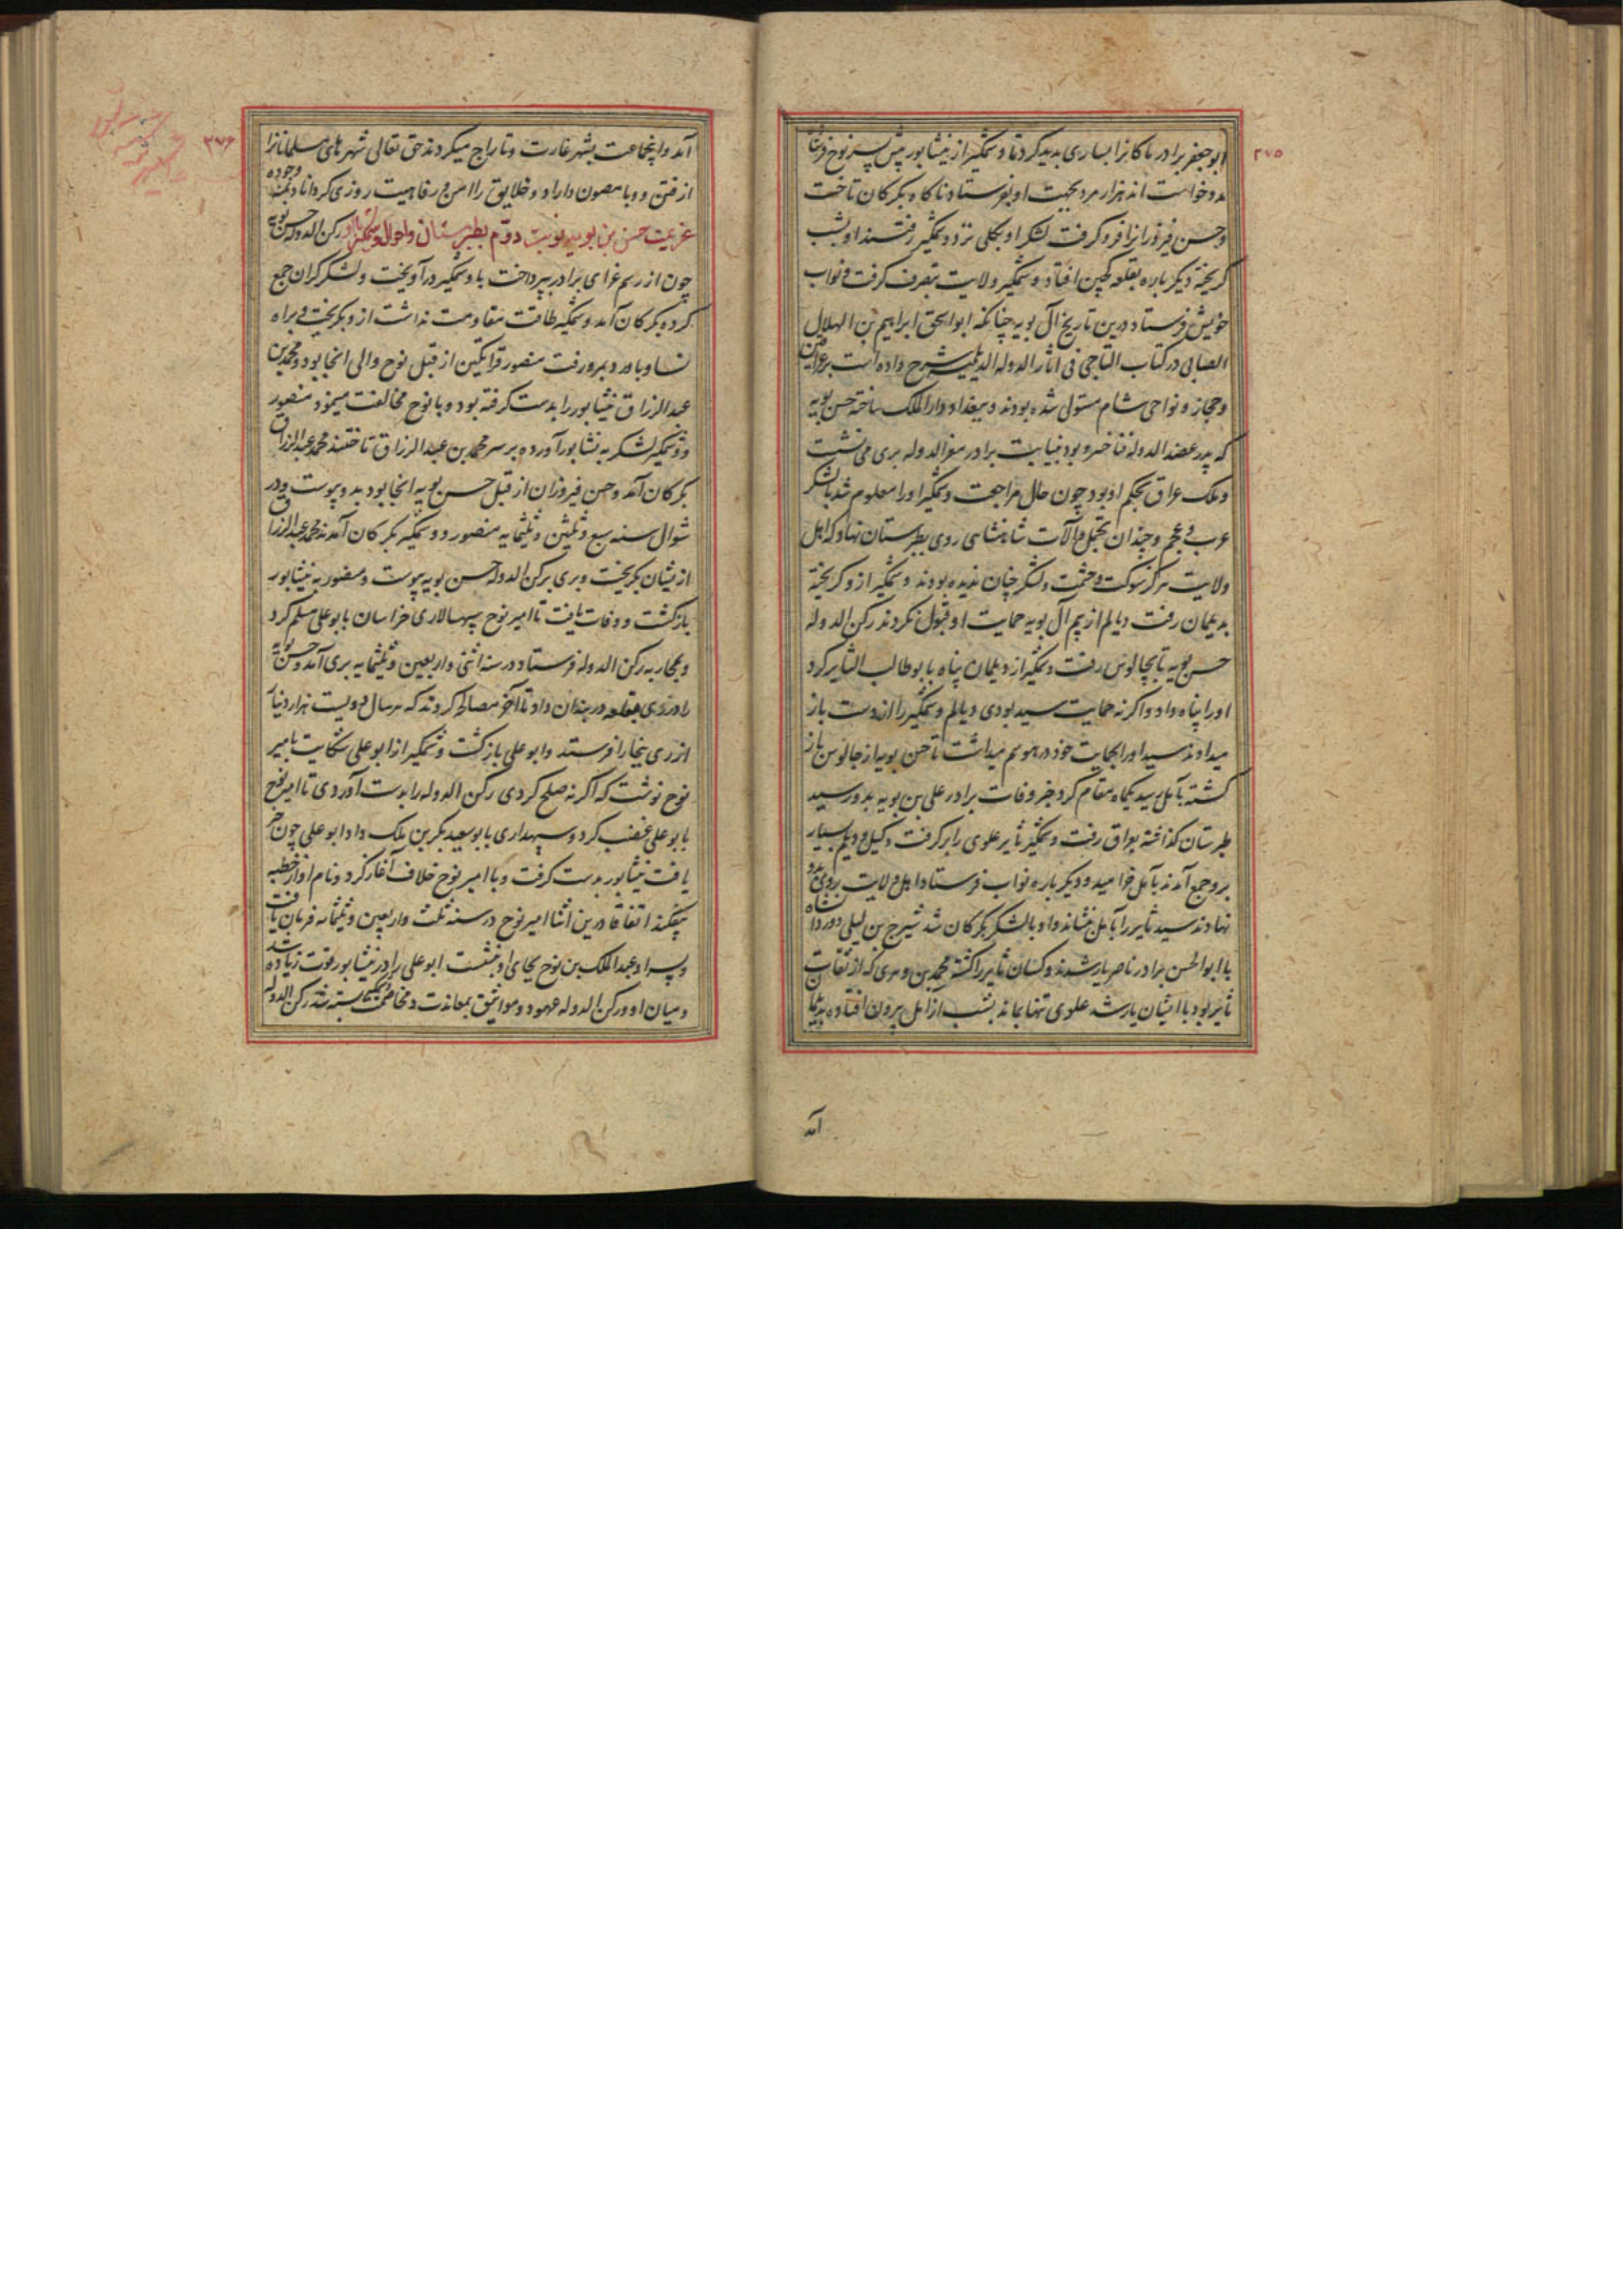 ۲۷۵
ابوجعفر برادر ماکانرا بساری بدید کرد تا وشمگیر از نیشابور پیش پسر نوح فرستاد
مدد خواست اند هزار مرد بجهت او بفرستاد ناکاه بکرکان تاخت
وحسن فیروزانرا فرو کرفت لشکر او بکلی نزد وشمگیر رفتند او بشب
کریخته دیکر باره بقلعه کجین افتاد وشمگیر ولایت بتصرف کرفت و نواب
خویش فرستاد درین تاریخ آل بویه چنانکه ابو اسحق ابراهیم بن الهلال
الصابی در کتاب التاجی فی اثار الدوله الدیلمیه شرح داده است بر عراقین
وحجاز و نواحی شام مستولی شده بودند و بغداد دار الملک ساخته حسن بویه
که پدر عضد الدوله فناخسرو بود بنیابت برادر معز الدوله بری می نشست
وملک عراق بحکم او بود چون حال مراجعت وشمگیر اورا معلوم شد با لشکر
عرب و عجم و چندان تجمل و آلات شاهنشاهی روی بطبرستان نهاد که اهل
ولایت هرکز شوکت و حشمت و لشکر چنان ندیده بودند وشمگیر ازو کریخته
بدیلمان رفت دیالم از بیم آل بویه حمایت او قبول نکردند رکن الدوله
حسن بویه تا بچالوس رفت وشمگیر از دیلمان پناه بابوطالب الثایر کرد
اورا پناه داد و اکر نه حمایت سید بودی دیالم وشمگیر را از دست باز
میدادند سید اورا بحمایت خود در هوسم میداشت تا حسن بویه از چالوس باز
کشته بآمل رسید یکماه مقام کرد خبر وفات برادر علی بن بویه بدو رسید
طبرستان کذاشته بعراق رفت وشمگیر ثایر علوی را بر کرفت و کیل و دیلم بسیار
برو جمع آمدند بآمل خرامید و دیکر باره نواب فرستاد و اهل ولایت روی بدو
نهادند سید ثایر را بآمل بنشاند و او با لشکر بکرکان شد شیرج بن لیلی دوردانشاه
با ابو الحسن برادر ناصر یار شدند و کسان ثایر را کشته محمد بن وهری که از ثقات
ثایر بود با ایشان یار شد علوی تنها بماند بشب از آمل بیرون افتاده بدیلمان
آمد
۲۷۶
آمد و اینجماعت بشهر غارت و تاراج میکردند حق تعالی شهرهای مسلمانانرا
از فتن و وبا مصون داراد و خلایق را امن و رفاهیت روزی کرداناد بمنه وجوده
عزیمت حسن بن بویه نوبت دوم بطبرستان و احوال وشمگیر با او رکن الدوله حسن بویه
چون از رسم عزای برادر بپرداخت با وشمگیر درآویخت و لشکر کران جمع
کرده بکرکان آمد وشمگیر طاقت مقاومت نداشت ازو بکریخت و براه
نسا و باورد بمرو رفت منصور قراتکین از قبل نوح والی انجا بود و محمد بن
عبد الرزاق نیشابور را بدست کرفته بود و با نوح مخالفت مینمود منصور
و وشمگیر لشکر به نشابور آورده بر سر محمد بن عبد الرزاق تاختند محمد عبد الرزاق
بکرکان آمد و حسن فیروزان از قبل حسن بویه انجا بود بدو پیوست و در
شوال سنه سبع و ثلثین و ثلثمایه منصور و وشمگیر بکرکان آمدند محمد عبد الرزاق
ازیشان بکریخت و بری برکن الدوله حسن بویه پیوست و منصور به نیشابور
بازکشت و وفات یافت تا امیر نوح سپهسالاری خراسان بابو علی مسلم کرد
و بمحاربه رکن الدوله فرستاد در سنه اثنی و اربعین و ثلثمایه بری آمد و حسن بویه
را در ری بقلعه در بندان داد تا آخر مصالحه کردند که هر سال دویست هزار دینار
از ری ببخارا فرستند و ابو علی بازکشت وشمگیر از ابو علی شکایت بامیر
نوح نوشت که اکر نه صلح کردی رکن الدوله را بدست آوردی تا امیر نوح
بابو علی غضب کرد و سپهداری بابو سعید بکر بن ملک داد ابو علی چون خبر
یافت نیشابور بدست کرفت و با امیر نوح خلاف آغاز کرد و نام او از خطبه
بیفکند اتفاقا درین اثنا امیر نوح در سنه ثلث و اربعین و ثلثمائه فرمان یافت
و پسر او عبد الملک بن نوح بجای او بنشست ابو علی را در نیشابور قوت زیاده شد
و میان او و رکن الدوله عهود و مواثیق بمعاندت و مخاصمت وشمگیر بسته شد رکن الدوله